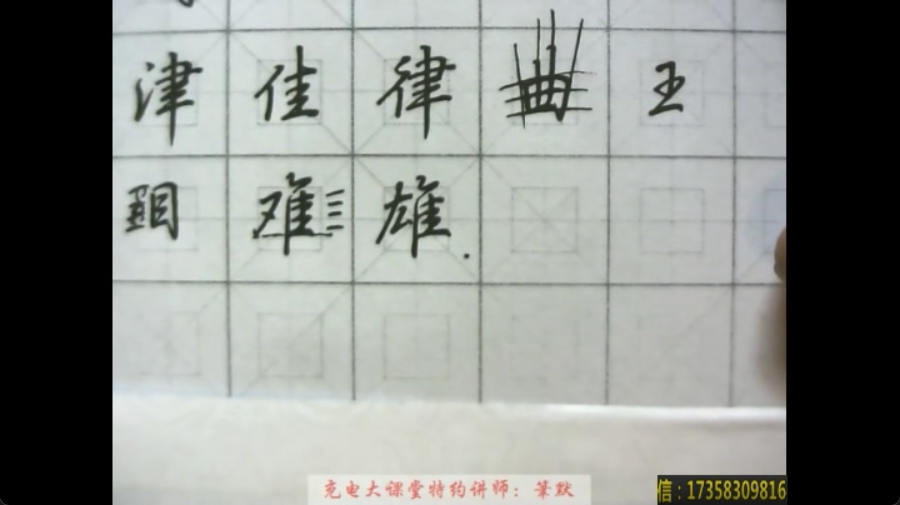 津 佳 律 曲 王
難 雄
充电大课堂特约讲师：笔默
信：17358309816